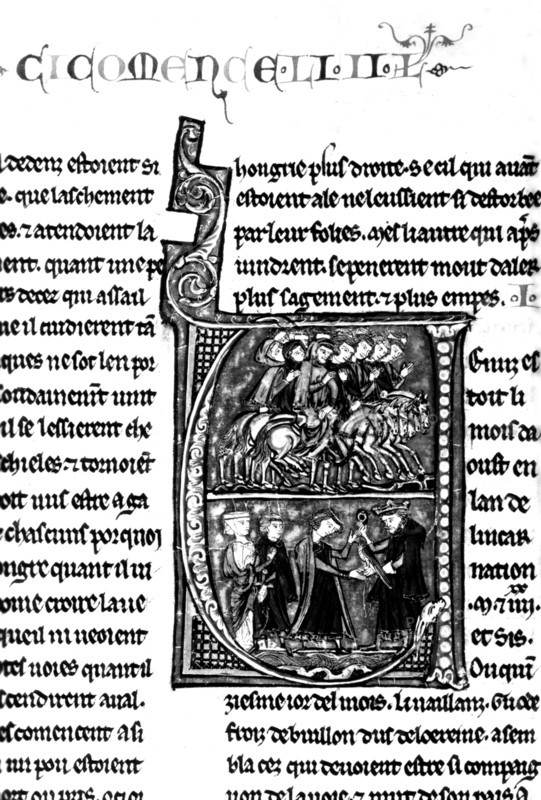 CI COMENCE LI II L
dedenz estoient si
e. que laschement
es. ⁊ atendoient la
ent. quant une pe
decez qui assail
ne il cuidierent tā
ques ne sot len por
soudainem̄t vint
il se lessierent che
chieles. ⁊ tornoiēt
oit uis estre a ga
chascuns porquoi
ongre quant il ui
croire la ue
queil ni veoient
uoies quantil
scendirent aual.
es comencent a si
estoient
hongrie plus droite. Se cil qui auāt
estoient ale neleussient si destorbee
par leur folies. Mes li autre qui ap̄s
uindrent. se penerent mout daler
plus sagement. ⁊ plus en pes. I
Guiz es
toit li
mois da
oust en
lan de
lincar
nation
.M. ⁊ .iiii.
et Sis.
Ou quī
ziesme ior del mois. li uaillanz Gode
froiz de buillon dus de loereine. asem
bla cez qui deuoient estre si compaig
non de la uoie. ⁊ mut de son pais a